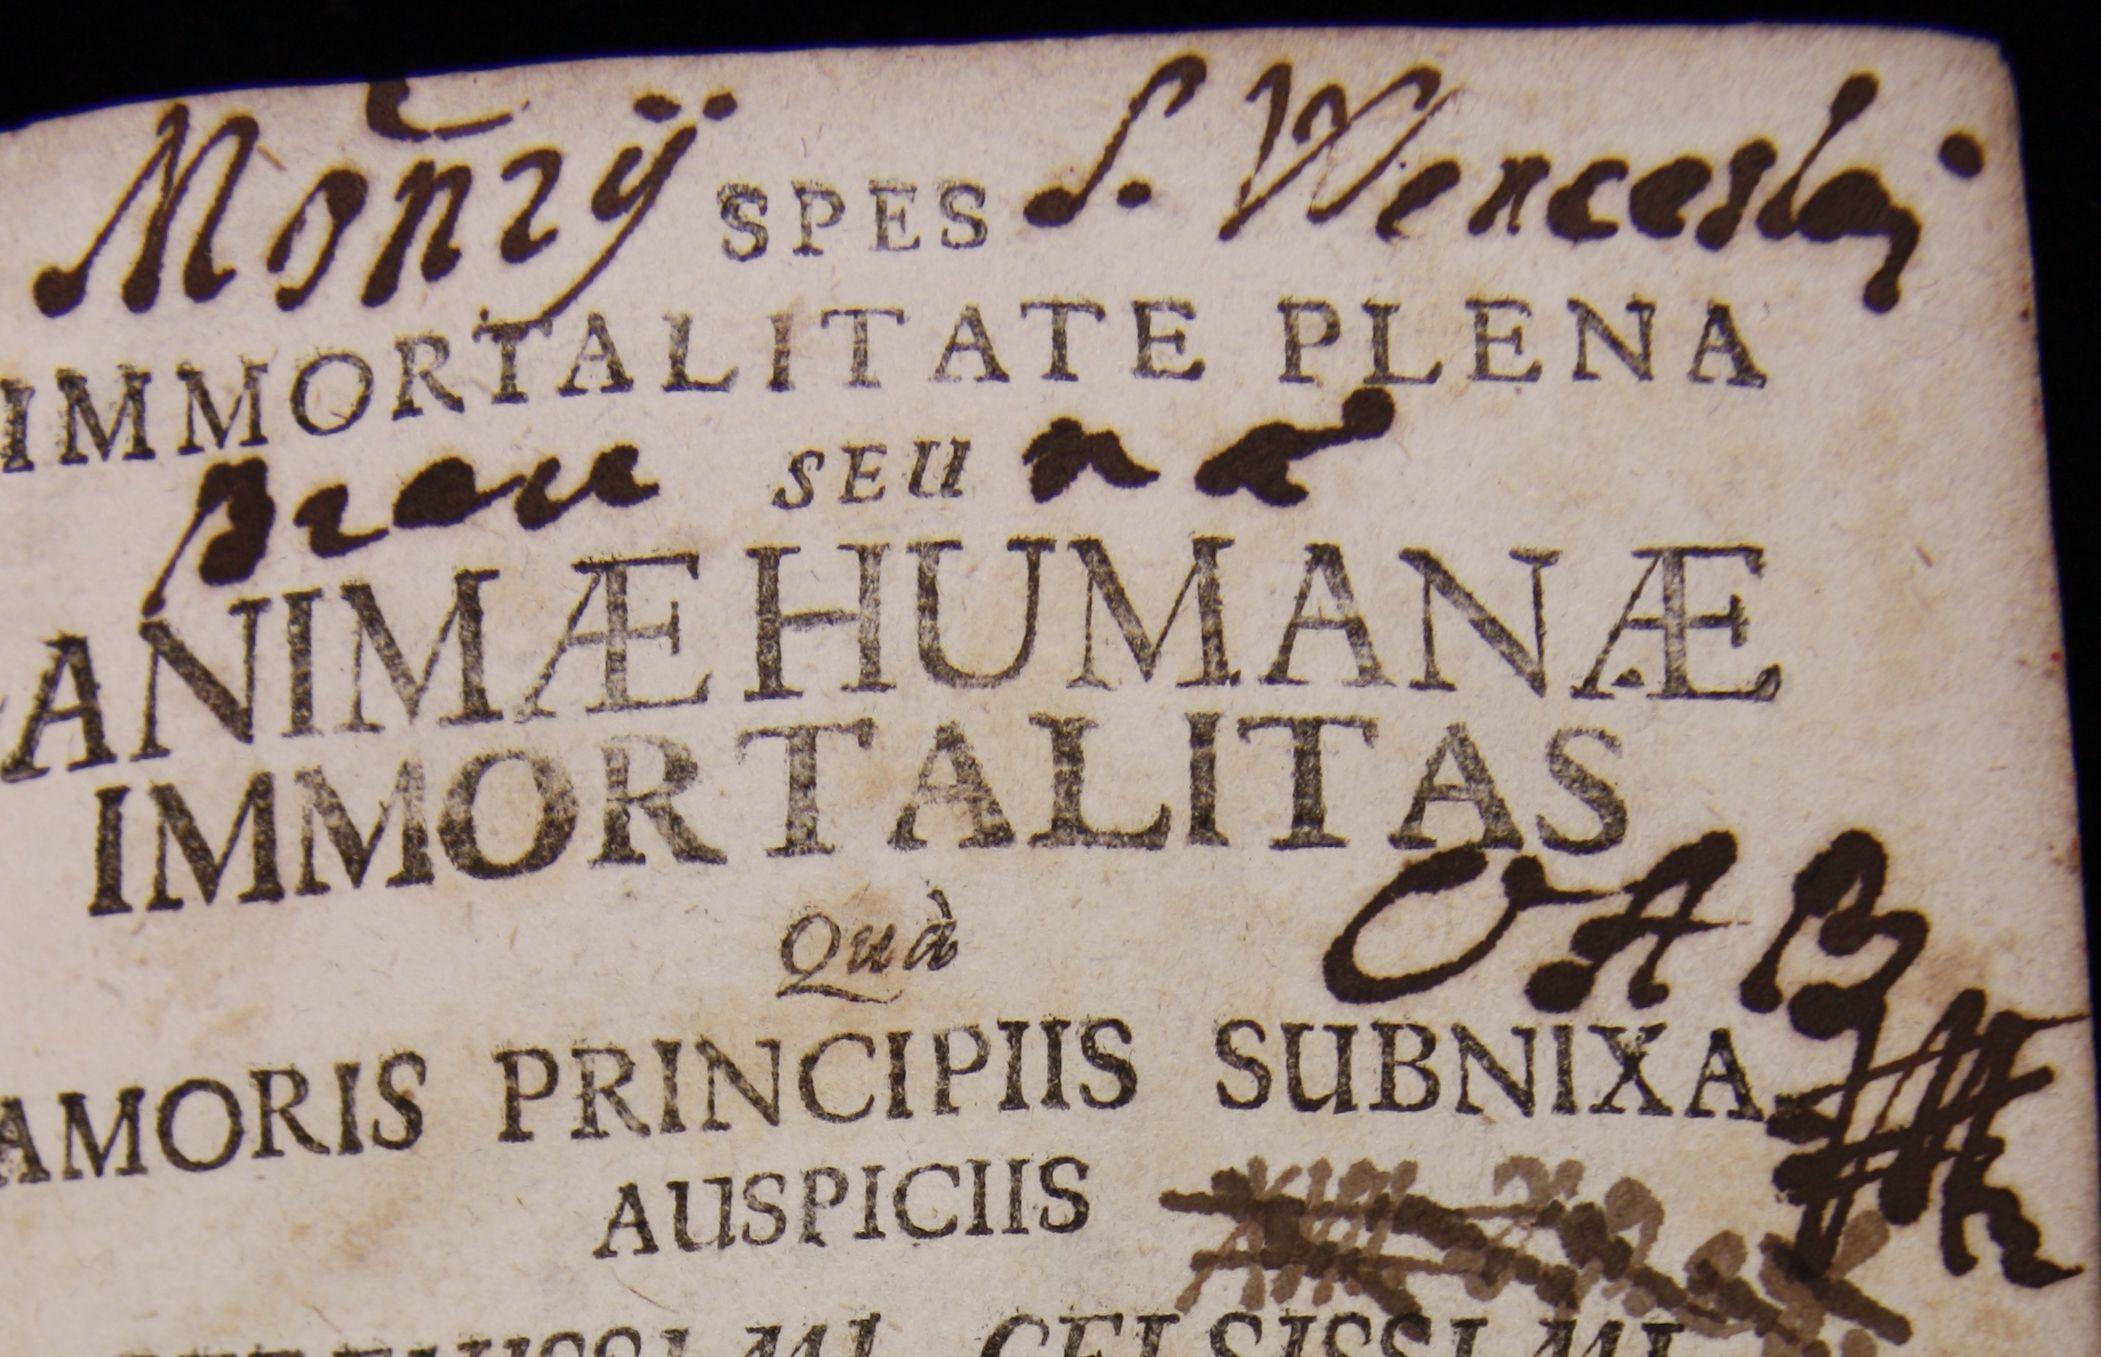 Moñrÿ SPES S. Wenceslai
IMMORTALITATE PLENA
Brau SEU næ
ANIMÆ HUMANÆ
IMMORTALITAS
Quà
OAB
AMORIS PRINCIPIIS SUBNIXA
AUSPICIIS
CELSISSIMI